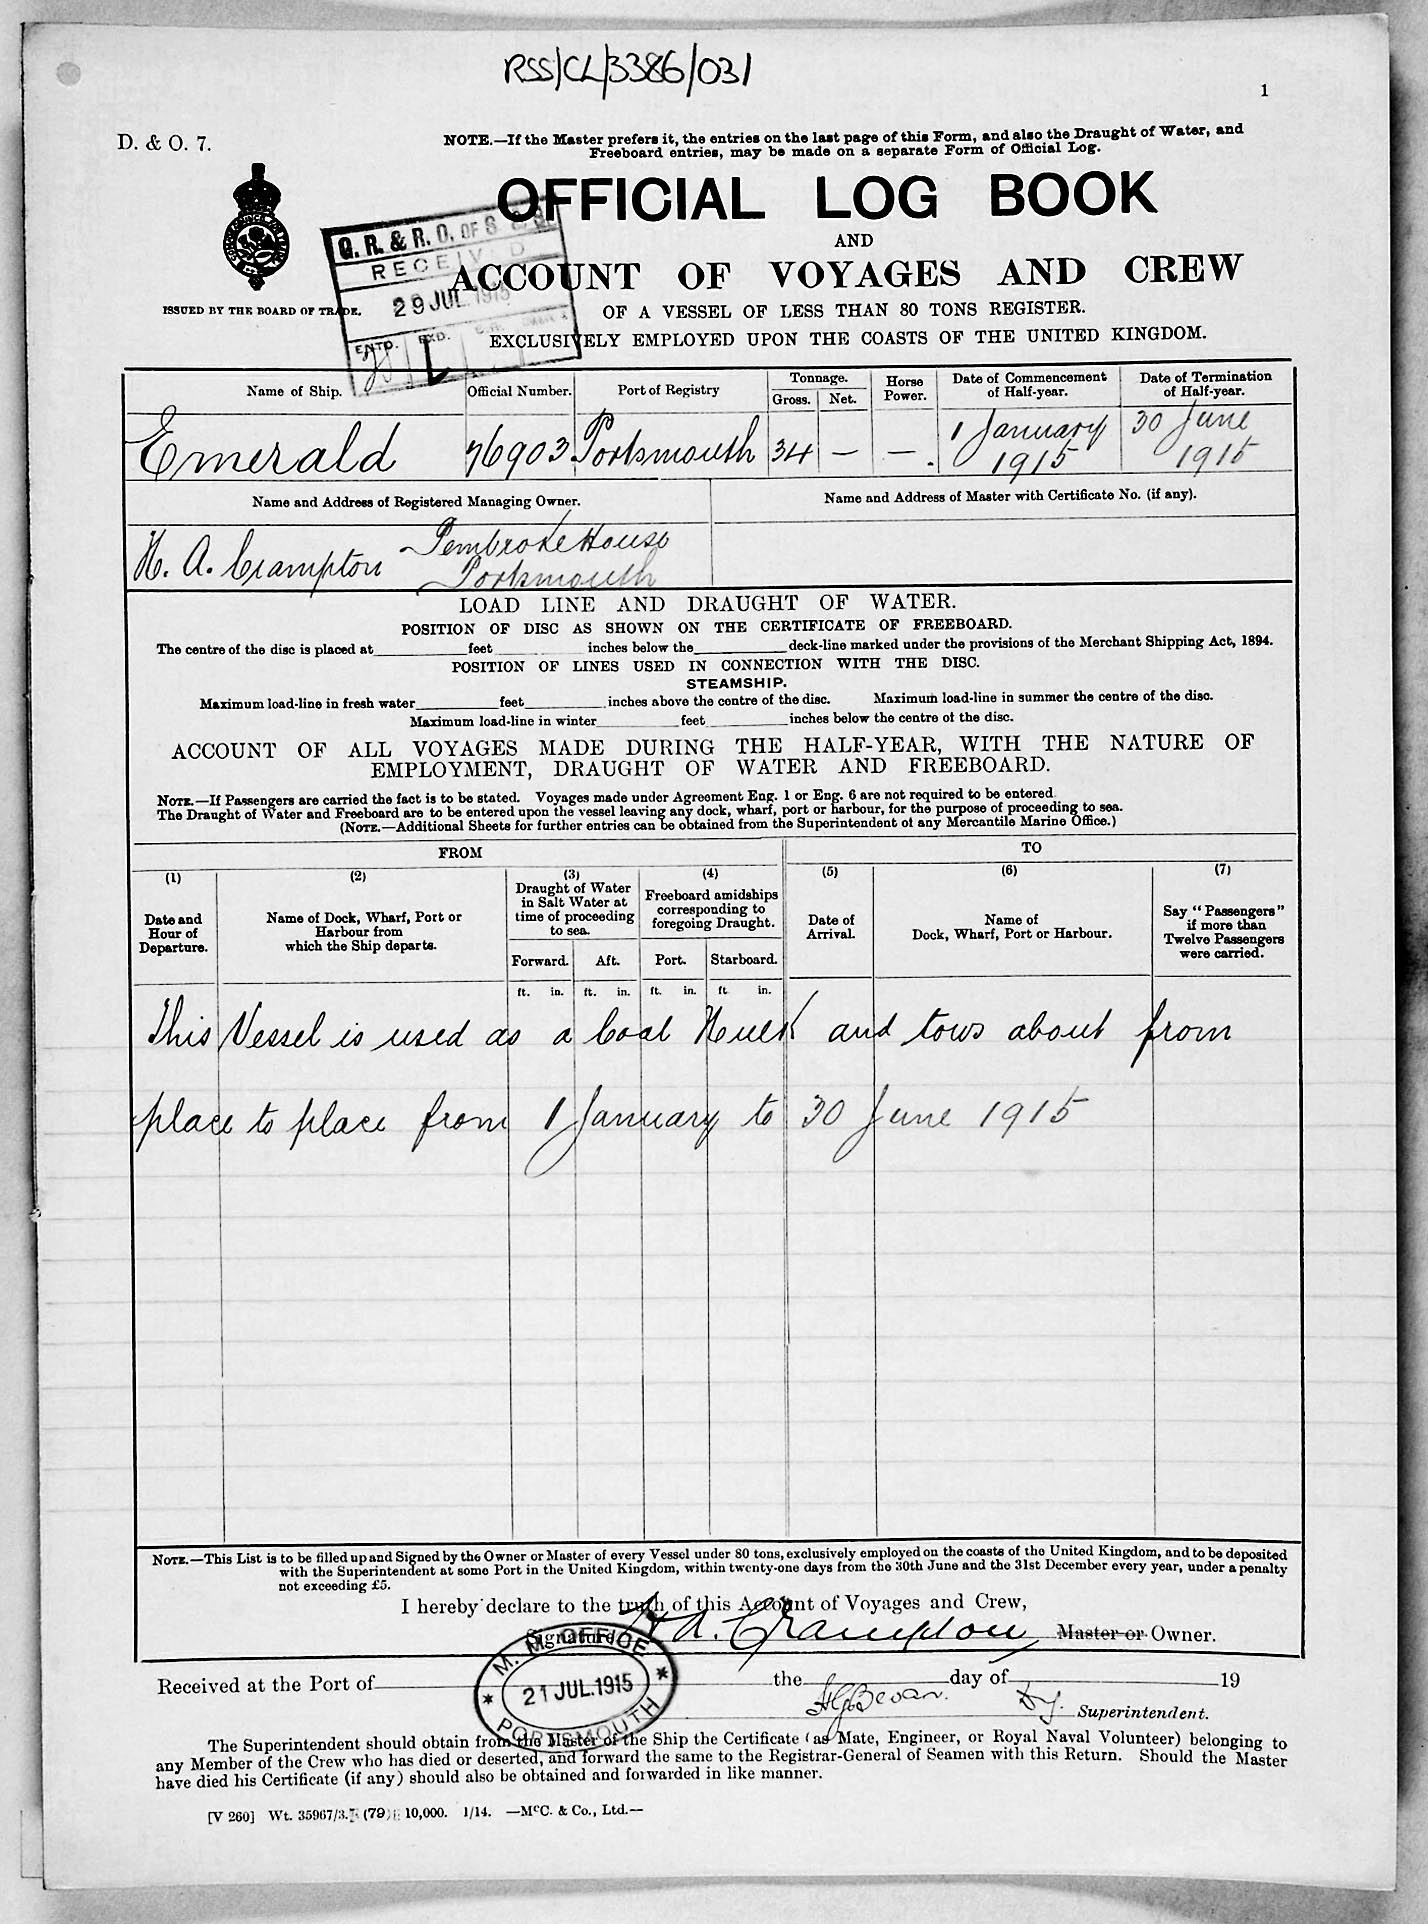 RSS/CL/3386/031
1
D. & O. 7.
NOTE.—If the Master prefers it, the entries on the last page of this Form, and also the Draught of Water, and
Freeboard entries, may be made on a separate Form of Official Log.
OFFICIAL LOG BOOK
AND
ACCOUNT OF VOYAGES AND CREW
OF A VESSEL OF LESS THAN 80 TONS REGISTER.
EXCLUSIVELY EMPLOYED UPON THE COASTS OF THE UNITED KINGDOM.
ISSUED BY THE BOARD OF TRADE.
G. R. & R. O. OF S & S.
RECEIVED
29 JUL 1915
ENTD. EXD.
Name of Ship. Official Number. Port of Registry Tonnage. Horse Power. Date of Commencement of Half-year. Date of Termination of Half-year.
Gross. Net.
Emerald 76903 Portsmouth 34 — —. 1 January 1915 30 June 1915
Name and Address of Registered Managing Owner. Name and Address of Master with Certificate No. (if any).
H. A. Crampton Pembroke House
Portsmouth
LOAD LINE AND DRAUGHT OF WATER.
POSITION OF DISC AS SHOWN ON THE CERTIFICATE OF FREEBOARD.
The centre of the disc is placed at feet inches below the deck-line marked under the provisions of the Merchant Shipping Act, 1894.
POSITION OF LINES USED IN CONNECTION WITH THE DISC.
STEAMSHIP.
Maximum load-line in fresh water feet inches above the centre of the disc. Maximum load-line in summer the centre of the disc.
Maximum load-line in winter feet inches below the centre of the disc.
ACCOUNT OF ALL VOYAGES MADE DURING THE HALF-YEAR, WITH THE NATURE OF
EMPLOYMENT, DRAUGHT OF WATER AND FREEBOARD.
NOTE.—If Passengers are carried the fact is to be stated. Voyages made under Agreement Eng. 1 or Eng. 6 are not required to be entered
The Draught of Water and Freeboard are to be entered upon the vessel leaving any dock, wharf, port or harbour, for the purpose of proceeding to sea.
(NOTE.—Additional Sheets for further entries can be obtained from the Superintendent of any Mercantile Marine Office.)
FROM TO
(1) (2) (3) (4) (5) (6) (7)
Date and Hour of Departure. Name of Dock, Wharf, Port or Harbour from which the Ship departs. Draught of Water in Salt Water at time of proceeding to sea. Freeboard amidships corresponding to foregoing Draught. Date of Arrival. Name of Dock, Wharf, Port or Harbour. Say "Passengers" if more than Twelve Passengers were carried.
Forward. Aft. Port. Starboard.
ft. in. ft. in. ft. in. ft in.
This Vessel is used as a Coal Hulk and tows about from
place to place from 1 January to 30 June 1915
NOTE.—This List is to be filled up and Signed by the Owner or Master of every Vessel under 80 tons, exclusively employed on the coasts of the United Kingdom, and to be deposited
with the Superintendent at some Port in the United Kingdom, within twenty-one days from the 30th June and the 31st December every year, under a penalty
not exceeding £5.
I hereby declare to the truth of this Account of Voyages and Crew,
Signature H A. Crampton Master or Owner.
M. M. OFFICE
21 JUL.1915
PORTSMOUTH
Received at the Port of the day of 19
HG Bevan. Dy. Superintendent.
The Superintendent should obtain from the Master of the Ship the Certificate (as Mate, Engineer, or Royal Naval Volunteer) belonging to
any Member of the Crew who has died or deserted, and forward the same to the Registrar-General of Seamen with this Return. Should the Master
have died his Certificate (if any) should also be obtained and forwarded in like manner.
[V 260] Wt. 35967/3. (79) 10,000. 1/14. —McC. & Co., Ltd.—